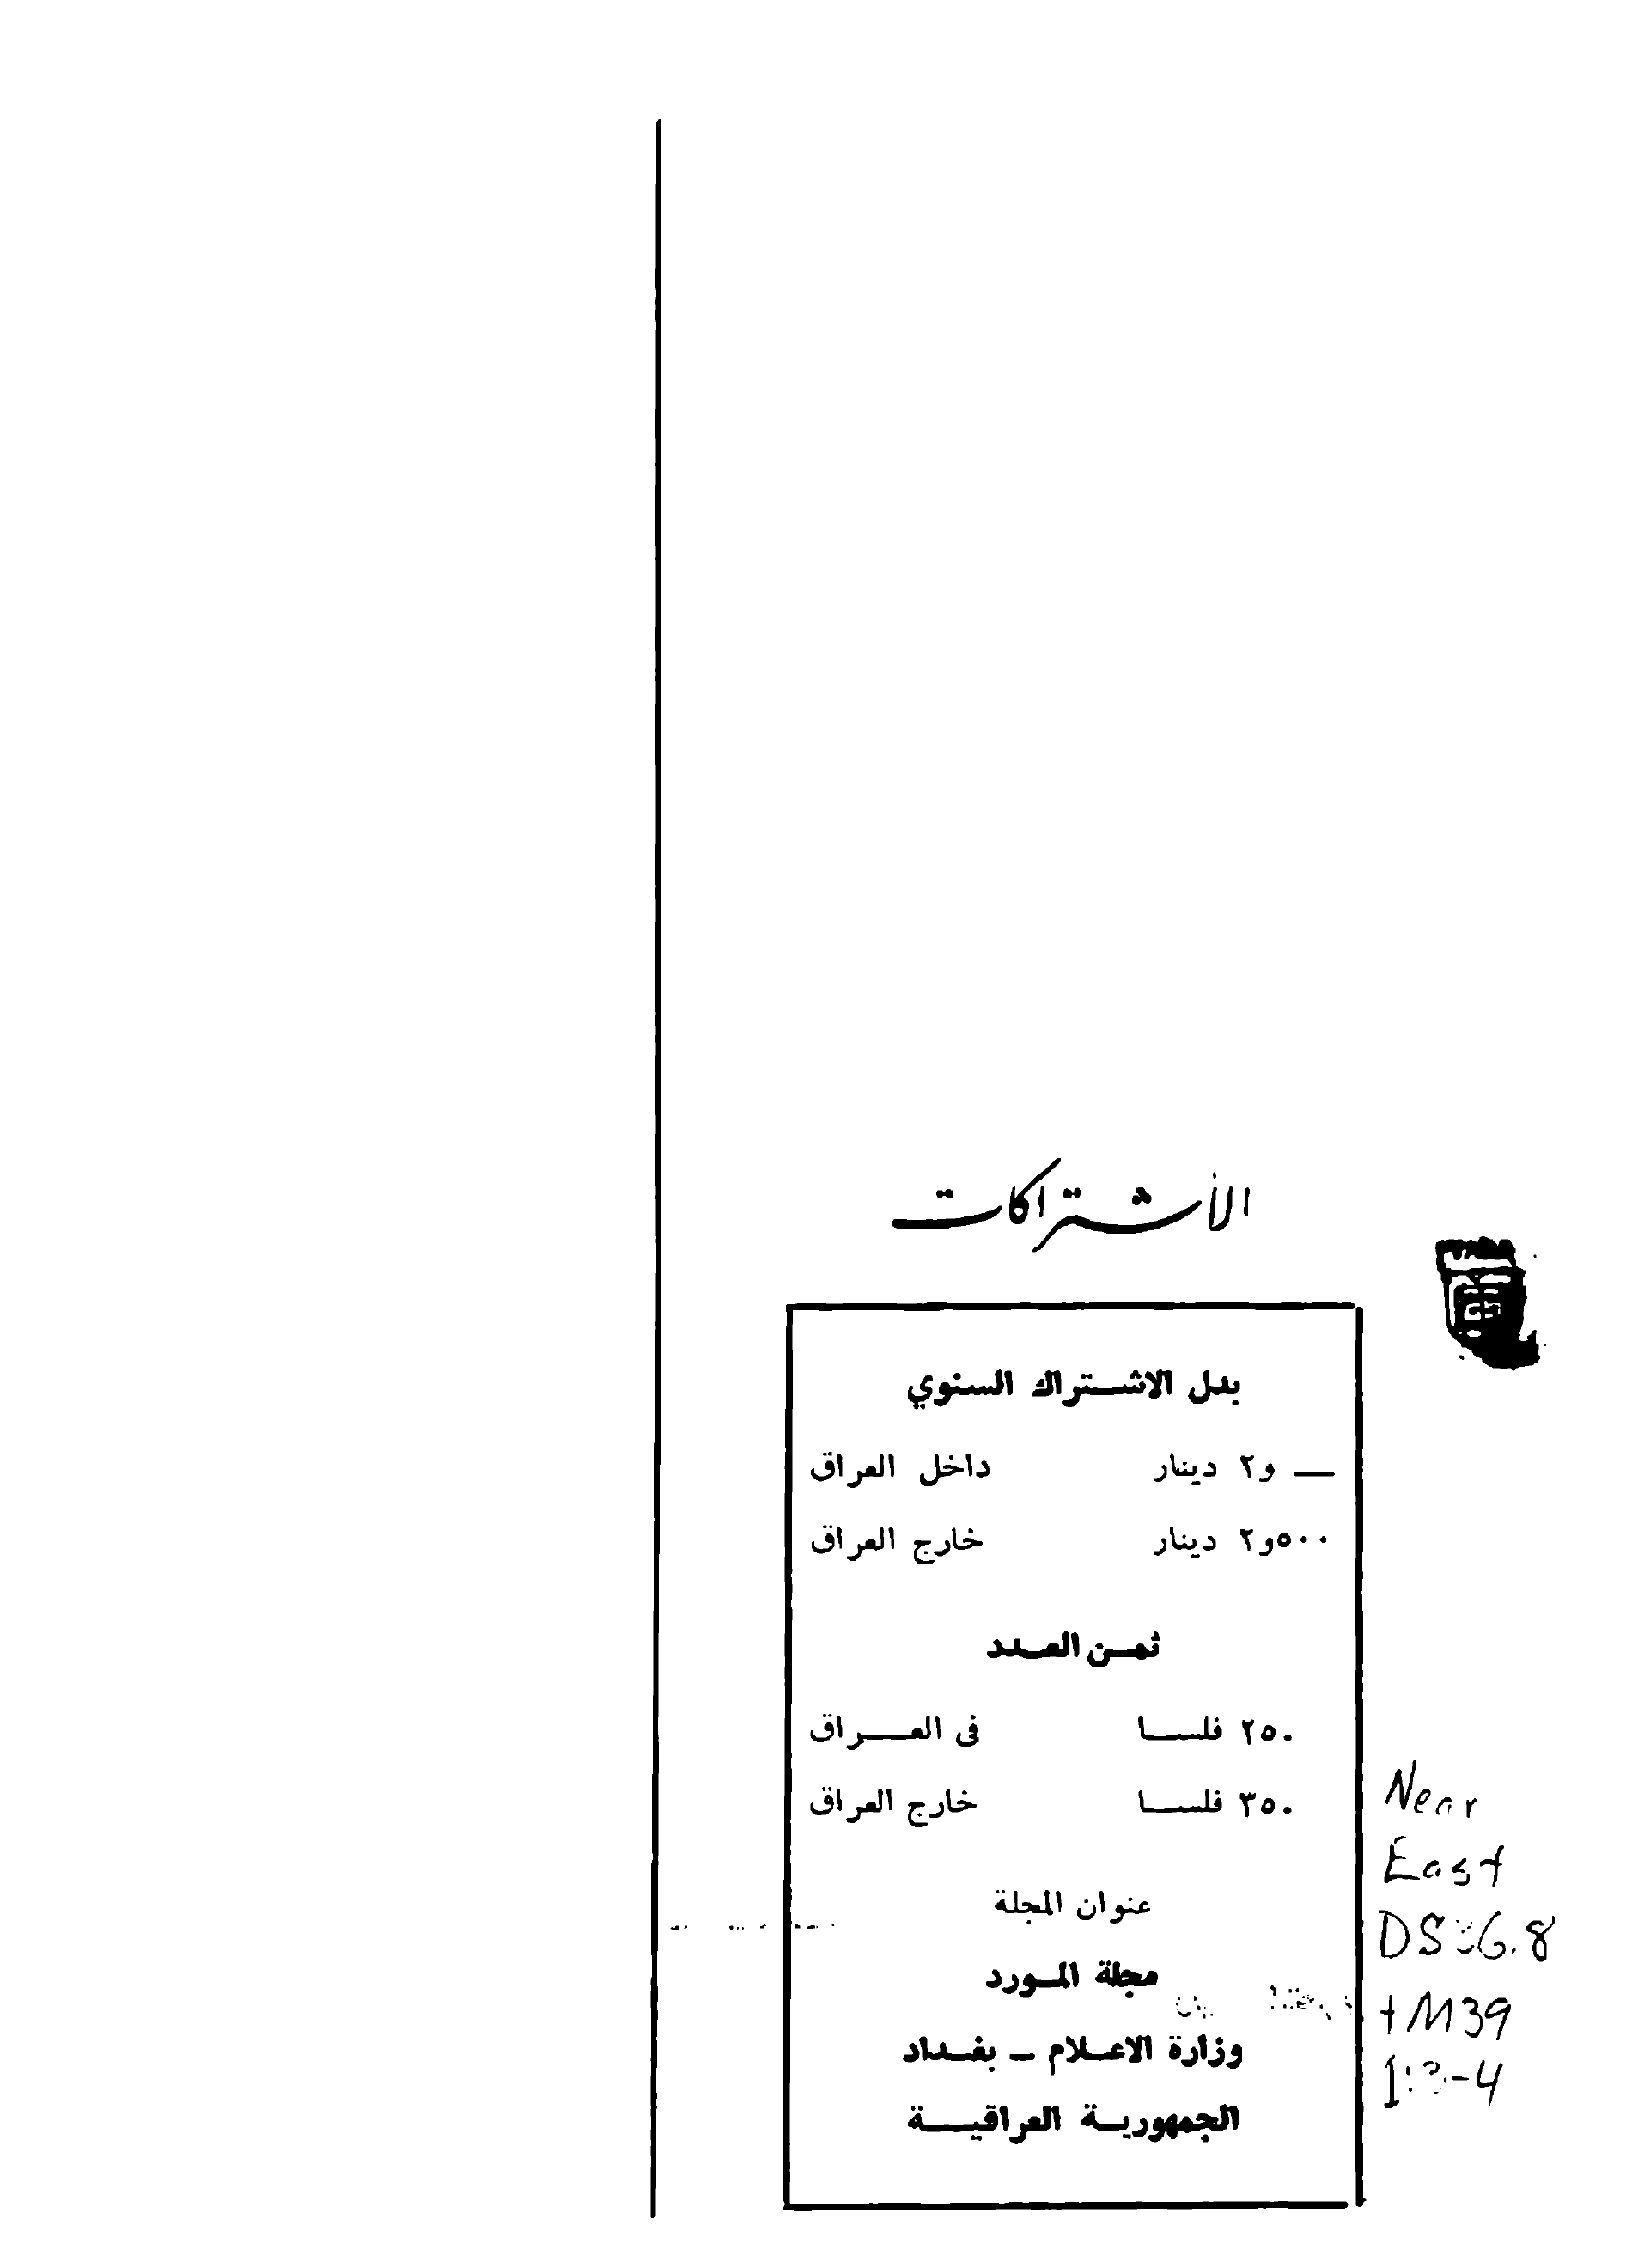 الأشتراكات
بدل الاشتراك السنوي
— و٢ دينار داخل العراق
٥٠٠و٢ دينار خارج العراق
ثمن العدد
٢٥٠ فلسا في العراق
٣٥٠ فلسا خارج العراق
عنوان المجلة
مجلة المورد
وزارة الاعلام – بغداد
الجمهورية العراقية
Near
East
+M39